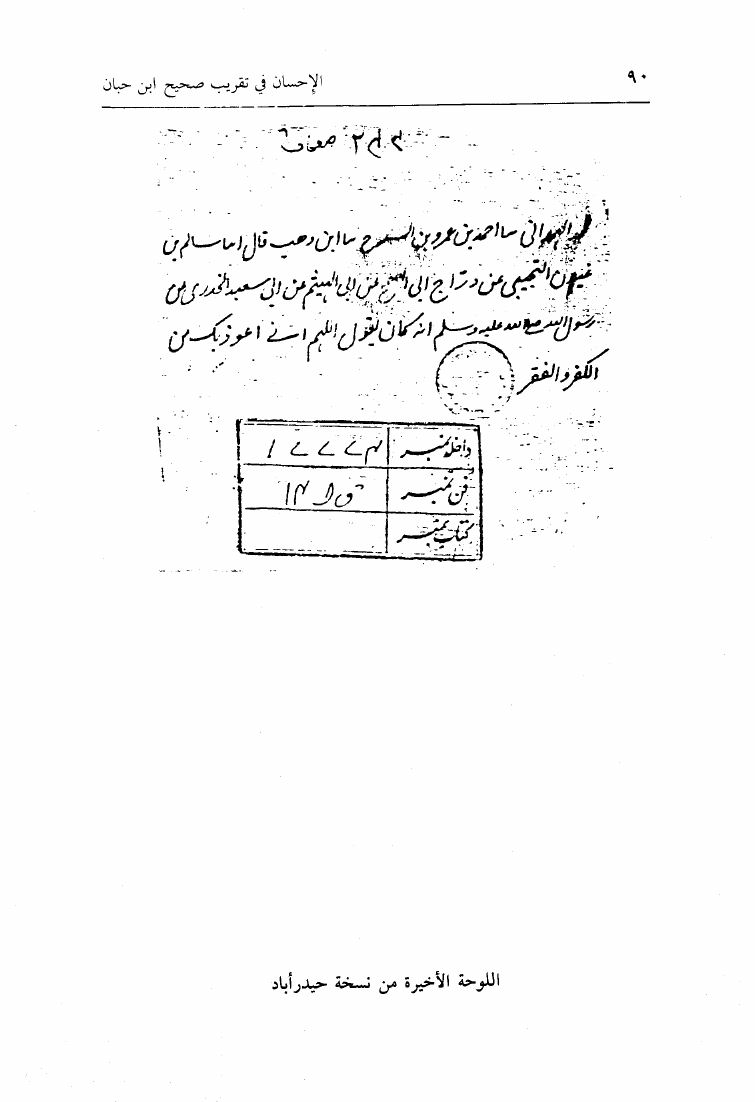 ٩٠
الإحسان في تقريب صحيح ابن حبان
صفحات
الهمداني سا احمد بن عمرو بن السرح سا ابن وهب قال اسا سالم بن
غيلان التجيبي عن دراج ابى السمح عن ابى الهيثم عن ابى سعيد الخدرى عن
رسول الله صلى الله عليه وسلم انه كان يقول اللهم انے اعوذ بك من
الكفر والفقر
داخله نمبر
فن نمبر
كتاب نمبر
اللوحة الأخيرة من نسخة حيدرأباد